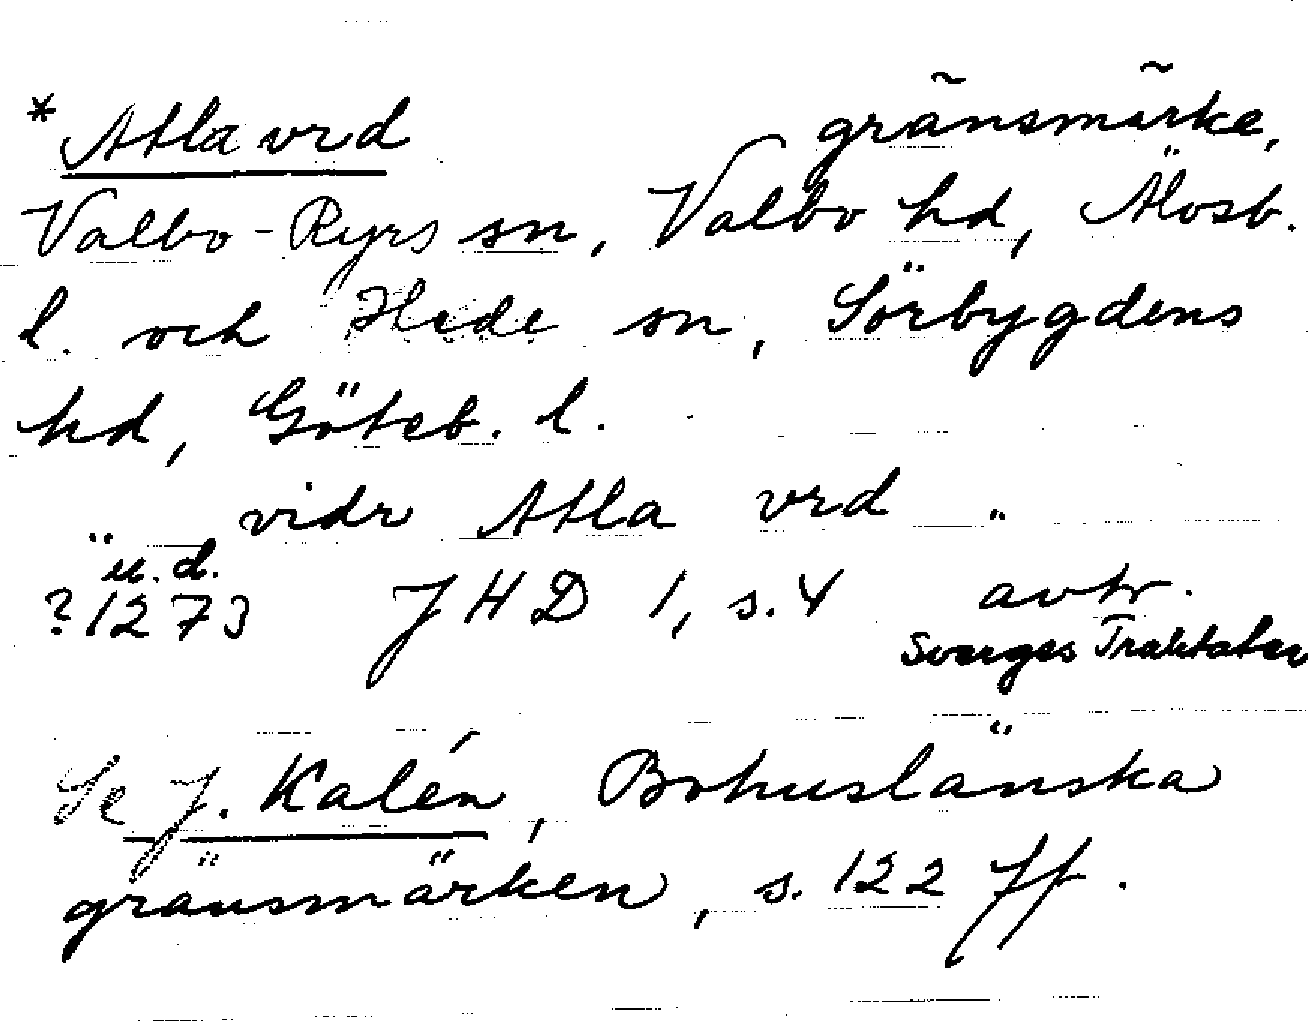 * Atla vrd gränsmärke,
Valbo-Ryrs sn, Valbo hd, Älvsb.
l. och Hede sn, Sörbygdens
hd, Göteb. l.
" vidr Atla vrd "
u.d.
?1273 JHD 1, s. 4 avtr.
Sverges Traktater
Se J. Kalén, Bohuslänska
gränsmärken, s. 122 ff.